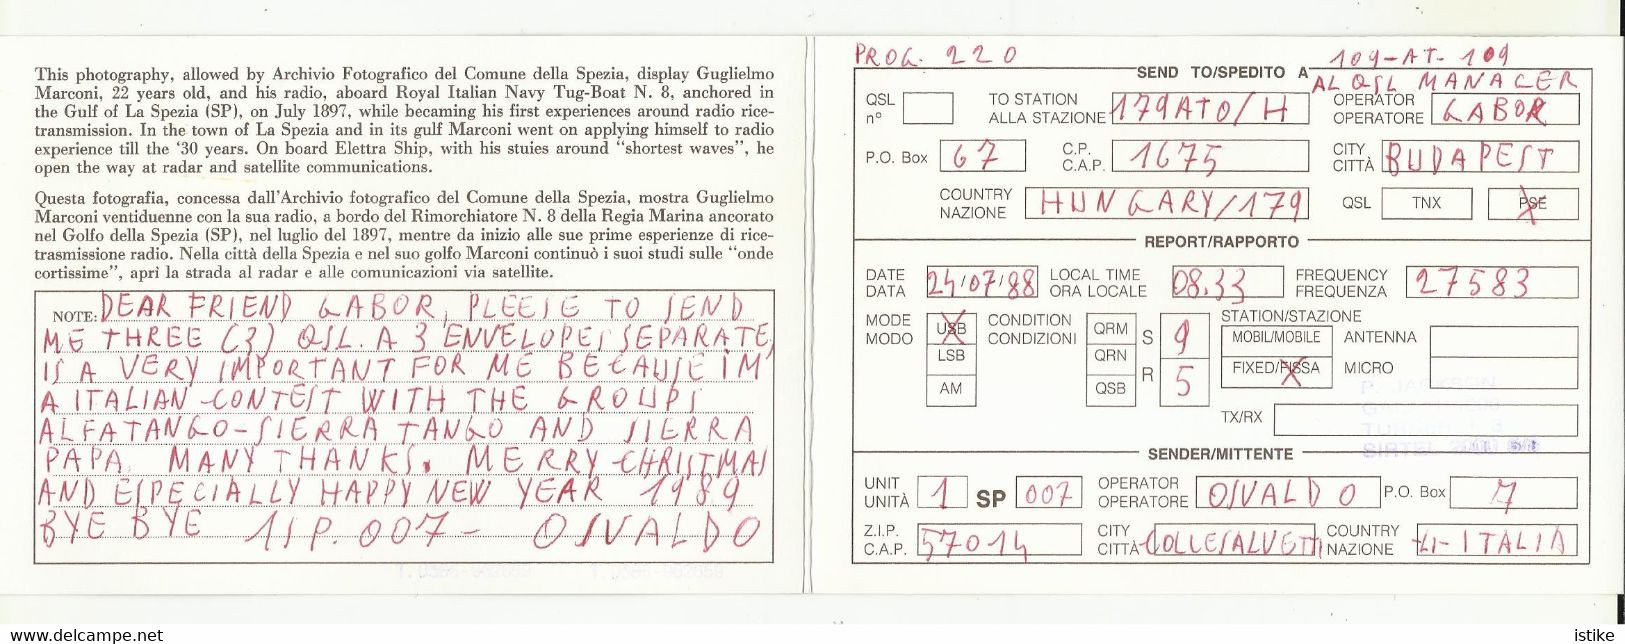 This photography, allowed by Archivio Fotografico del Comune della Spezia, display Guglielmo
Marconi, 22 years old, and his radio, aboard Royal Italian Navy Tug-Boat N. 8, anchored in
the Gulf of La Spezia (SP), on July 1897, while becaming his first experiences around radio rice-
transmission. In the town of La Spezia and in its gulf Marconi went on applying himself to radio
experience till the '30 years. On board Elettra Ship, with his stuies around "shortest waves", he
open the way at radar and satellite communications.
Questa fotografia, concessa dall'Archivio fotografico del Comune della Spezia, mostra Guglielmo
Marconi ventiduenne con la sua radio, a bordo del Rimorchiatore N. 8 della Regia Marina ancorato
nel Golfo della Spezia (SP), nel luglio del 1897, mentre da inizio alle sue prime esperienze di rice-
trasmissione radio. Nella città della Spezia e nel suo golfo Marconi continuò i suoi studi sulle "onde
cortissime", aprì la strada al radar e alle comunicazioni via satellite.
NOTE: DEAR FRIEND GABOR, PLEESE TO SEND
ME THREE (3) QSL. A 3 ENVELOPES SEPARATE,
IS A VERY IMPORTANT FOR ME BECAUSE IM
A ITALIAN CONTEST WITH THE GROUPS
ALFATANGO-SIERRA TANGO AND SIERRA
PAPA. MANY THANKS. MERRY CHRISTMAS
AND ESPECIALLY HAPPY NEW YEAR 1989
BYE BYE 1SP.007- OSVALDO
PROG. 220 109-AT-109
SEND TO/SPEDITO A AL QSL MANAGER
QSL n° TO STATION ALLA STAZIONE 179ATO/H OPERATOR OPERATORE GABOR
P.O. Box 67 C.P. C.A.P. 1675 CITY CITTÀ BUDAPEST
COUNTRY NAZIONE HUNGARY/179 QSL TNX PSE
REPORT/RAPPORTO
DATE DATA 24/07/88 LOCAL TIME ORA LOCALE 08.33 FREQUENCY FREQUENZA 27583
MODE MODO USB LSB AM CONDITION CONDIZIONI QRM QRN QSB S 9 R 5
STATION/STAZIONE
MOBIL/MOBILE ANTENNA
FIXED/FISSA MICRO
TX/RX
SENDER/MITTENTE
UNIT UNITÀ 1 SP 007 OPERATOR OPERATORE OSVALDO P.O. Box 7
Z.I.P. C.A.P. 57014 CITY CITTÀ COLLESALVETTI COUNTRY NAZIONE -LI- ITALIA
https://www.delcampe.net
istike